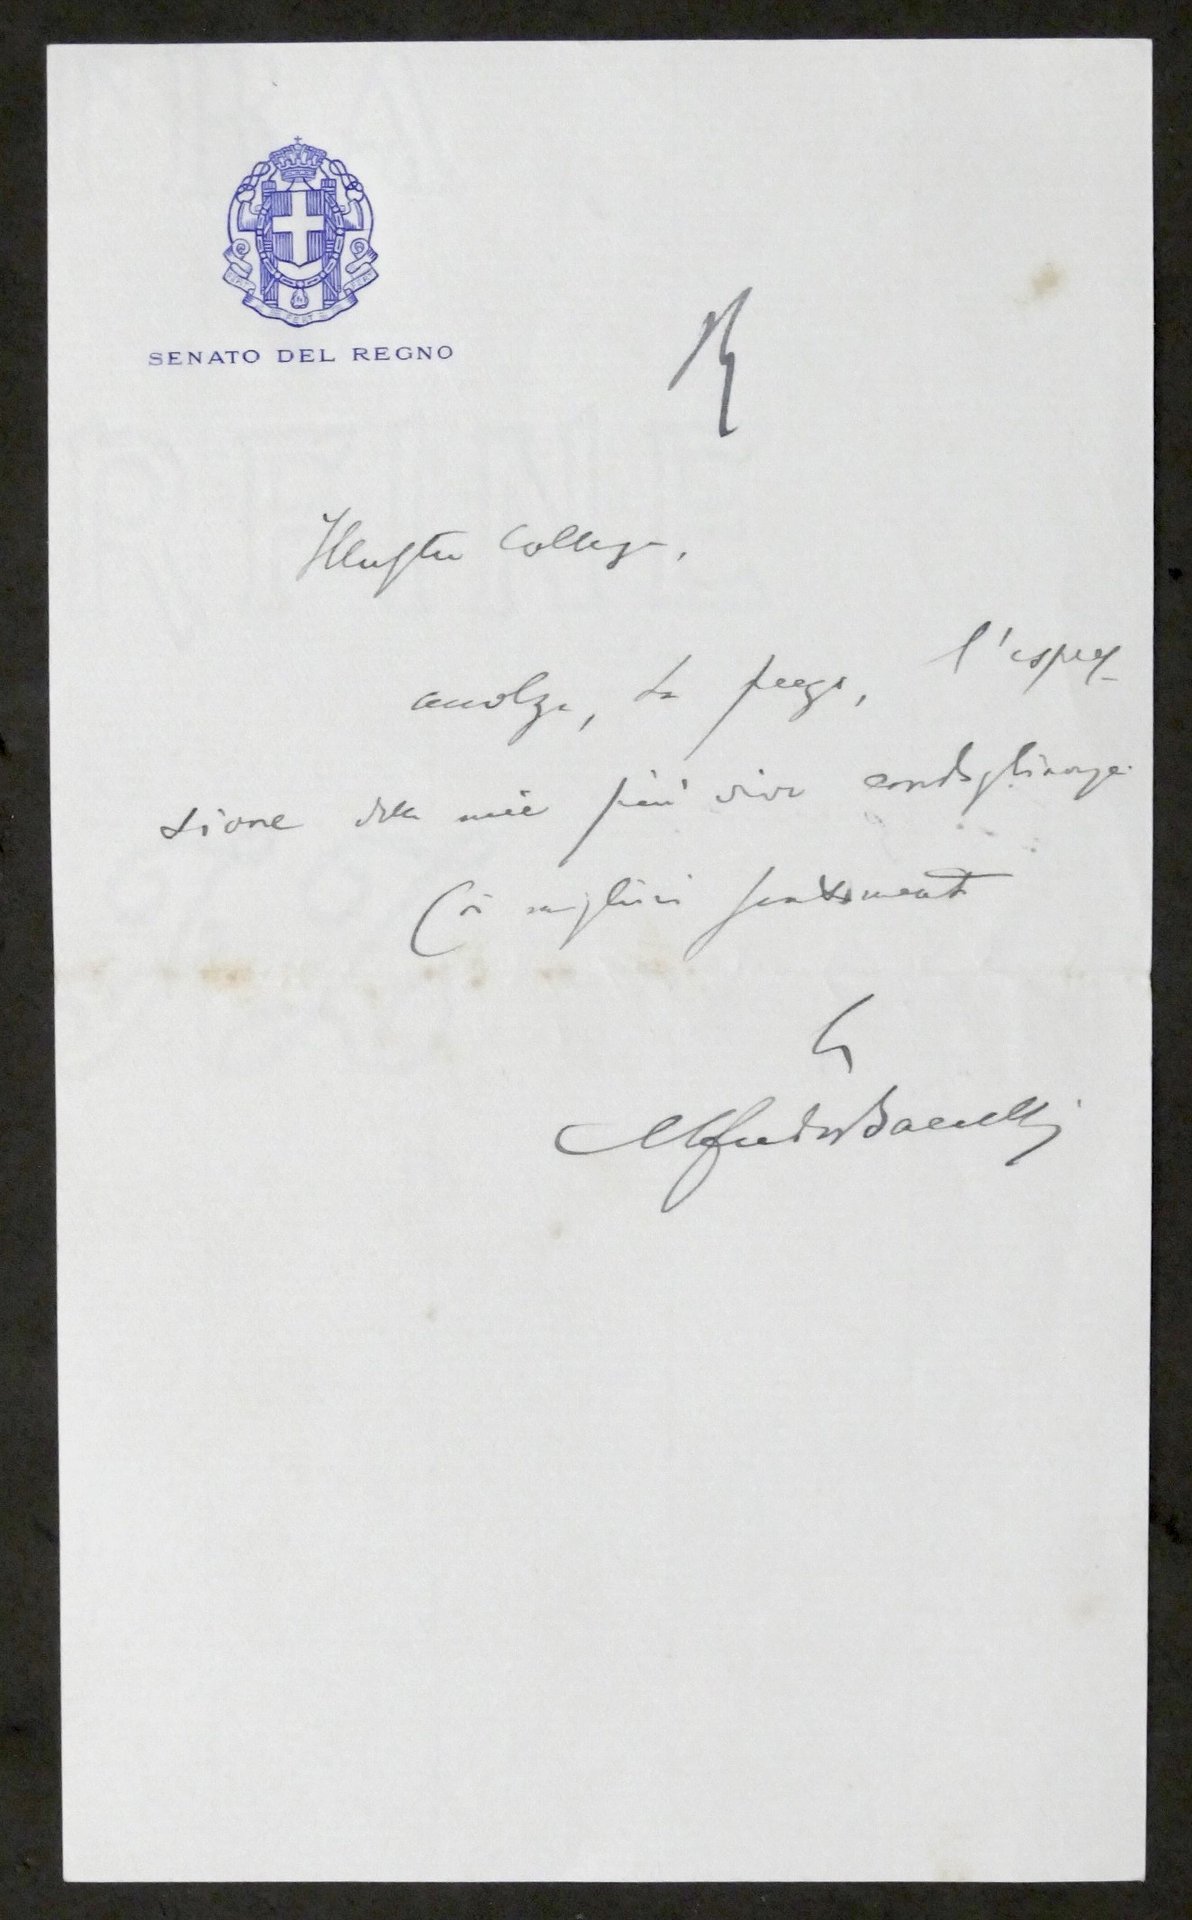 FERT FERT FERT
SENATO DEL REGNO
R
Illustre Collega,
accolga, La prego, l'espres-
sione della mia più viva condoglianza.
Coi migliori sentimenti
Alfredo Baccelli